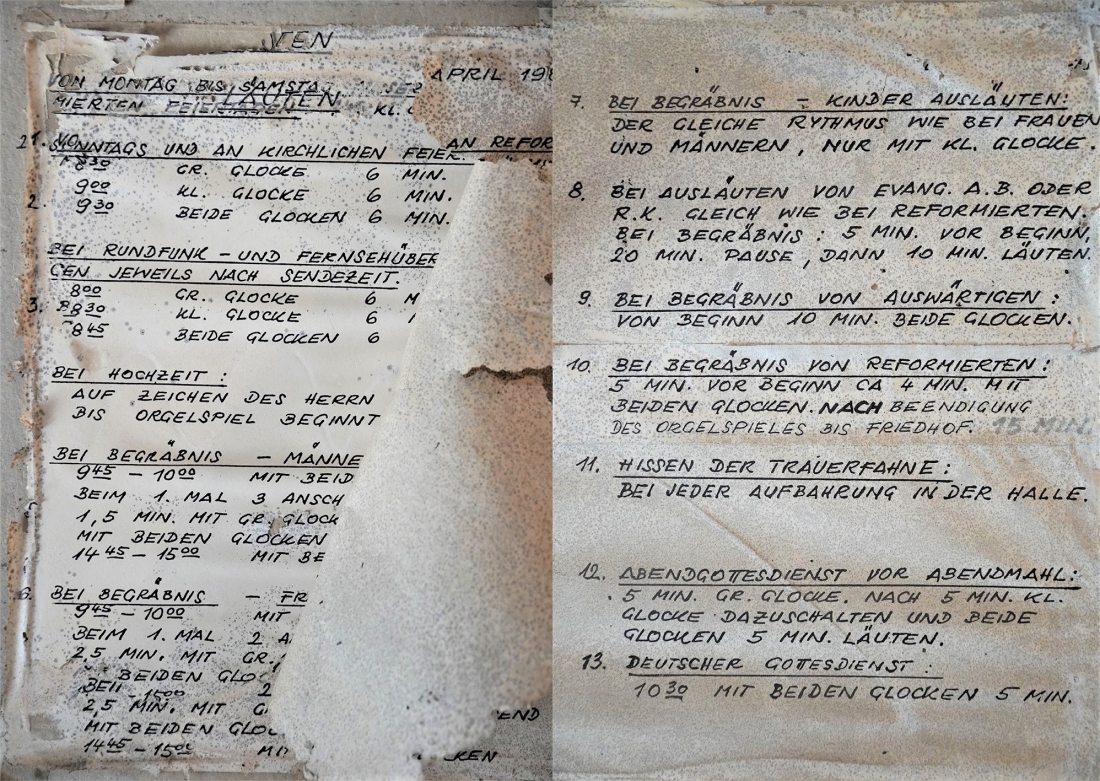 TEN
APRIL 19
VON MONTAG BIS SAMSTA
LÄUTEN
MIERTEN FEIERTAGEN KL.
AN REFOR
SONNTAGS UND AN KIRCHLICHEN FEIER.
8 30 GR. GLOCKE 6 MIN.
9 00 KL. GLOCKE 6 MIN.
2. 9 30 BEIDE GLOCKEN 6 MIN.
BEI RUNDFUNK - UND FERNSEHÜBER
GEN JEWEILS NACH SENDEZEIT.
8 00 GR. GLOCKE 6 M
3. 8 30 KL. GLOCKE 6
8 45 BEIDE GLOCKEN 6
BEI HOCHZEIT :
AUF ZEICHEN DES HERRN
BIS ORGELSPIEL BEGINNT
BEI BEGRÄBNIS - MÄNNE
9 45 - 10 00 MIT BEID
BEIM 1. MAL 3 ANSCH
1,5 MIN. MIT GR. GLOCK
MIT BEIDEN GLOCKEN
14 45 - 15 00 MIT BE
6. BEI BEGRÄBNIS - FR
9 45 - 10 00 MIT
BEIM 1. MAL 2 A
2,5 MIN. MIT GR.
BEIDEN GLO
BEI 2
2,5 MIN. MIT G
MIT BEIDEN GLO
14 45 - 15 00 MI
END
KEN
7. BEI BEGRÄBNIS - KINDER AUSLÄUTEN:
DER GLEICHE RYTHMUS WIE BEI FRAUEN
UND MÄNNERN, NUR MIT KL. GLOCKE.
8. BEI AUSLÄUTEN VON EVANG. A.B. ODER
R.K. GLEICH WIE BEI REFORMIERTEN.
BEI BEGRÄBNIS : 5 MIN. VOR BEGINN,
20 MIN. PAUSE, DANN 10 MIN. LÄUTEN.
9. BEI BEGRÄBNIS VON AUSWÄRTIGEN :
VON BEGINN 10 MIN. BEIDE GLOCKEN.
10. BEI BEGRÄBNIS VON REFORMIERTEN :
5 MIN. VOR BEGINN CA 4 MIN. MIT
BEIDEN GLOCKEN. NACH BEENDIGUNG
DES ORGELSPIELES BIS FRIEDHOF. 15 MIN.
11. HISSEN DER TRAUERFAHNE :
BEI JEDER AUFBAHRUNG IN DER HALLE.
12. ABENDGOTTESDIENST VOR ABENDMAHL:
5 MIN. GR. GLOCKE. NACH 5 MIN. KL.
GLOCKE DAZUSCHALTEN UND BEIDE
GLOCKEN 5 MIN. LÄUTEN.
13. DEUTSCHER GOTTESDIENST :
10 30 MIT BEIDEN GLOCKEN 5 MIN.